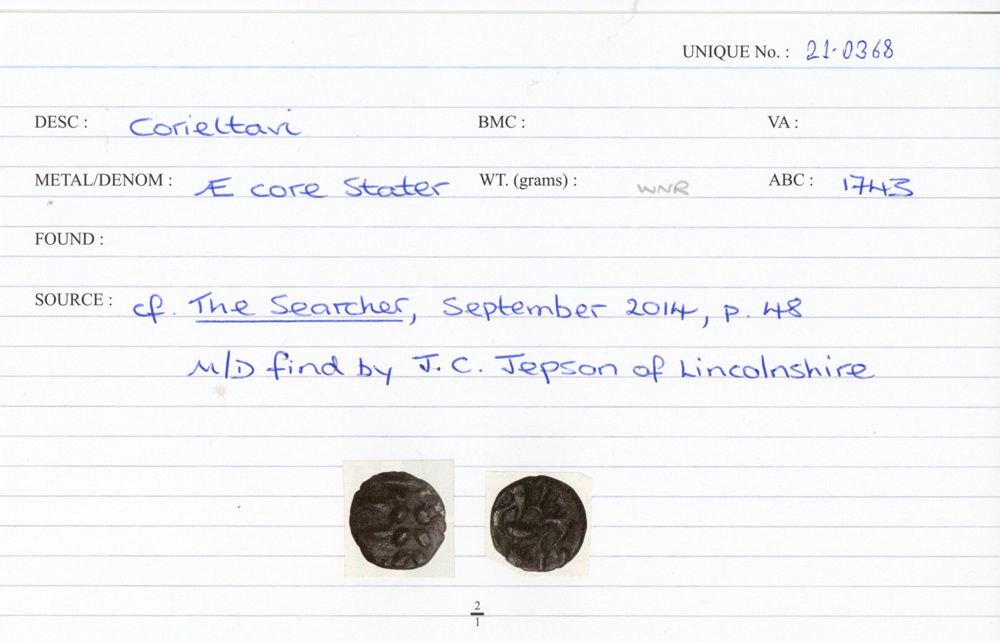 UNIQUE No. : 21-0368
DESC : Corieltavi BMC : VA :
METAL/DENOM : Æ core Stater WT. (grams) : WNR ABC : 1743
FOUND :
SOURCE : cf. The Searcher, September 2014, p. 48
M/D find by J. C. Jepson of Lincolnshire
2
1